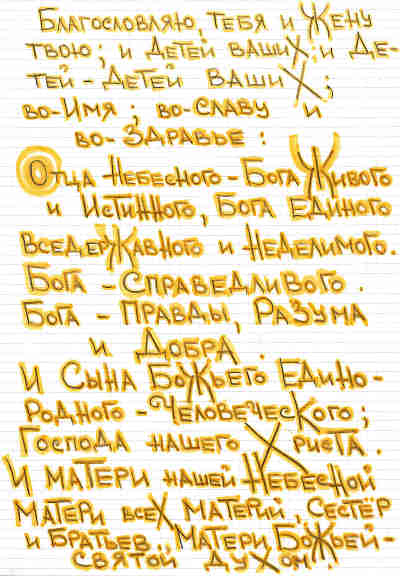 Благословляю, тебя и Жену
твою; и детей ваших; и де-
тей-детей ваших;
во-Имя; во-славу и
во-здравье:
Отца Небесного-Бога Живого
и Истинного, Бога Единого
Вседержавного и Неделимого.
Бога - Справедливого.
Бога - Правды, Разума
и Добра.
И Сына Божьего Едино-
родного-Человеческого;
Господа нашего Христа.
И матери нашей Небесной
Матери всех материй, Сестёр
и Братьев, Матери Божьей-
Святой Духом.